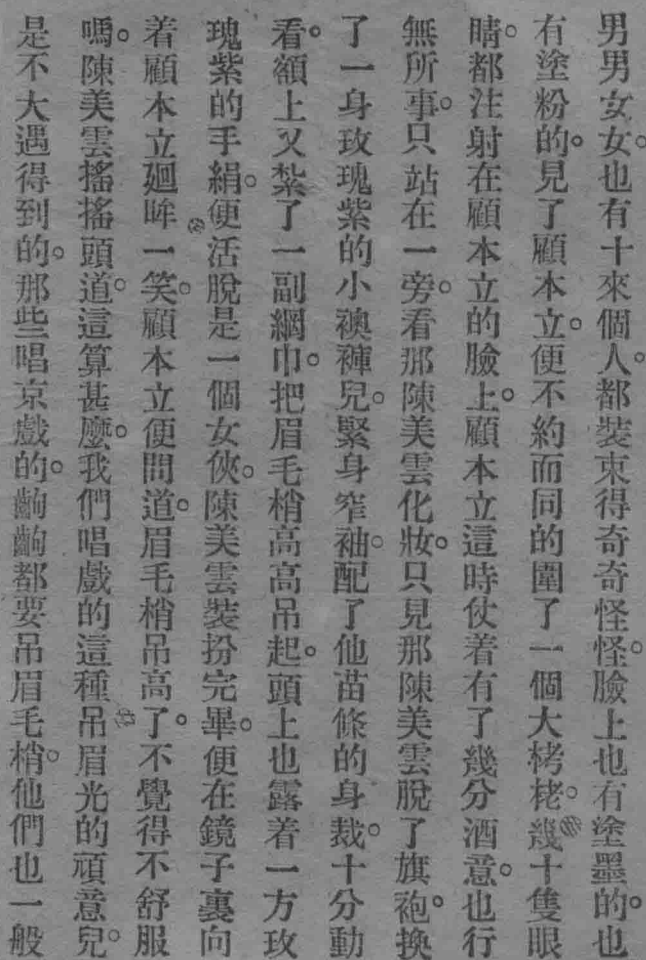 男男女女。也有十來個人。都裝束得奇奇怪怪。臉上也有塗墨的。也
有塗粉的。見了顧本立。便不約而同的圍了一個大栲栳。幾十隻眼
睛。都注射在顧本立的臉上。顧本立這時仗着有了幾分酒意。也行
無所事。只站在一旁。看那陳美雲化妝。只見那陳美雲脫了旗袍。換
了一身玫瑰紫的小襖褲兒。緊身窄袖。配了他苗條的身裁。十分動
看。額上又紮了一副網巾。把眉毛梢高高吊起。頭上也露着一方玫
瑰紫的手絹。便活脫是一個女俠。陳美雲裝扮完畢。便在鏡子裏向
着顧本立廻眸一笑。顧本立便問道。眉毛梢吊高了。不覺得不舒服
嗎。陳美雲搖搖頭道。這算甚麼。我們唱戲的這種吊眉光的頑意兒。
是不大遇得到的。那些唱京戲的。齣齣都要吊眉毛梢。他們也一般